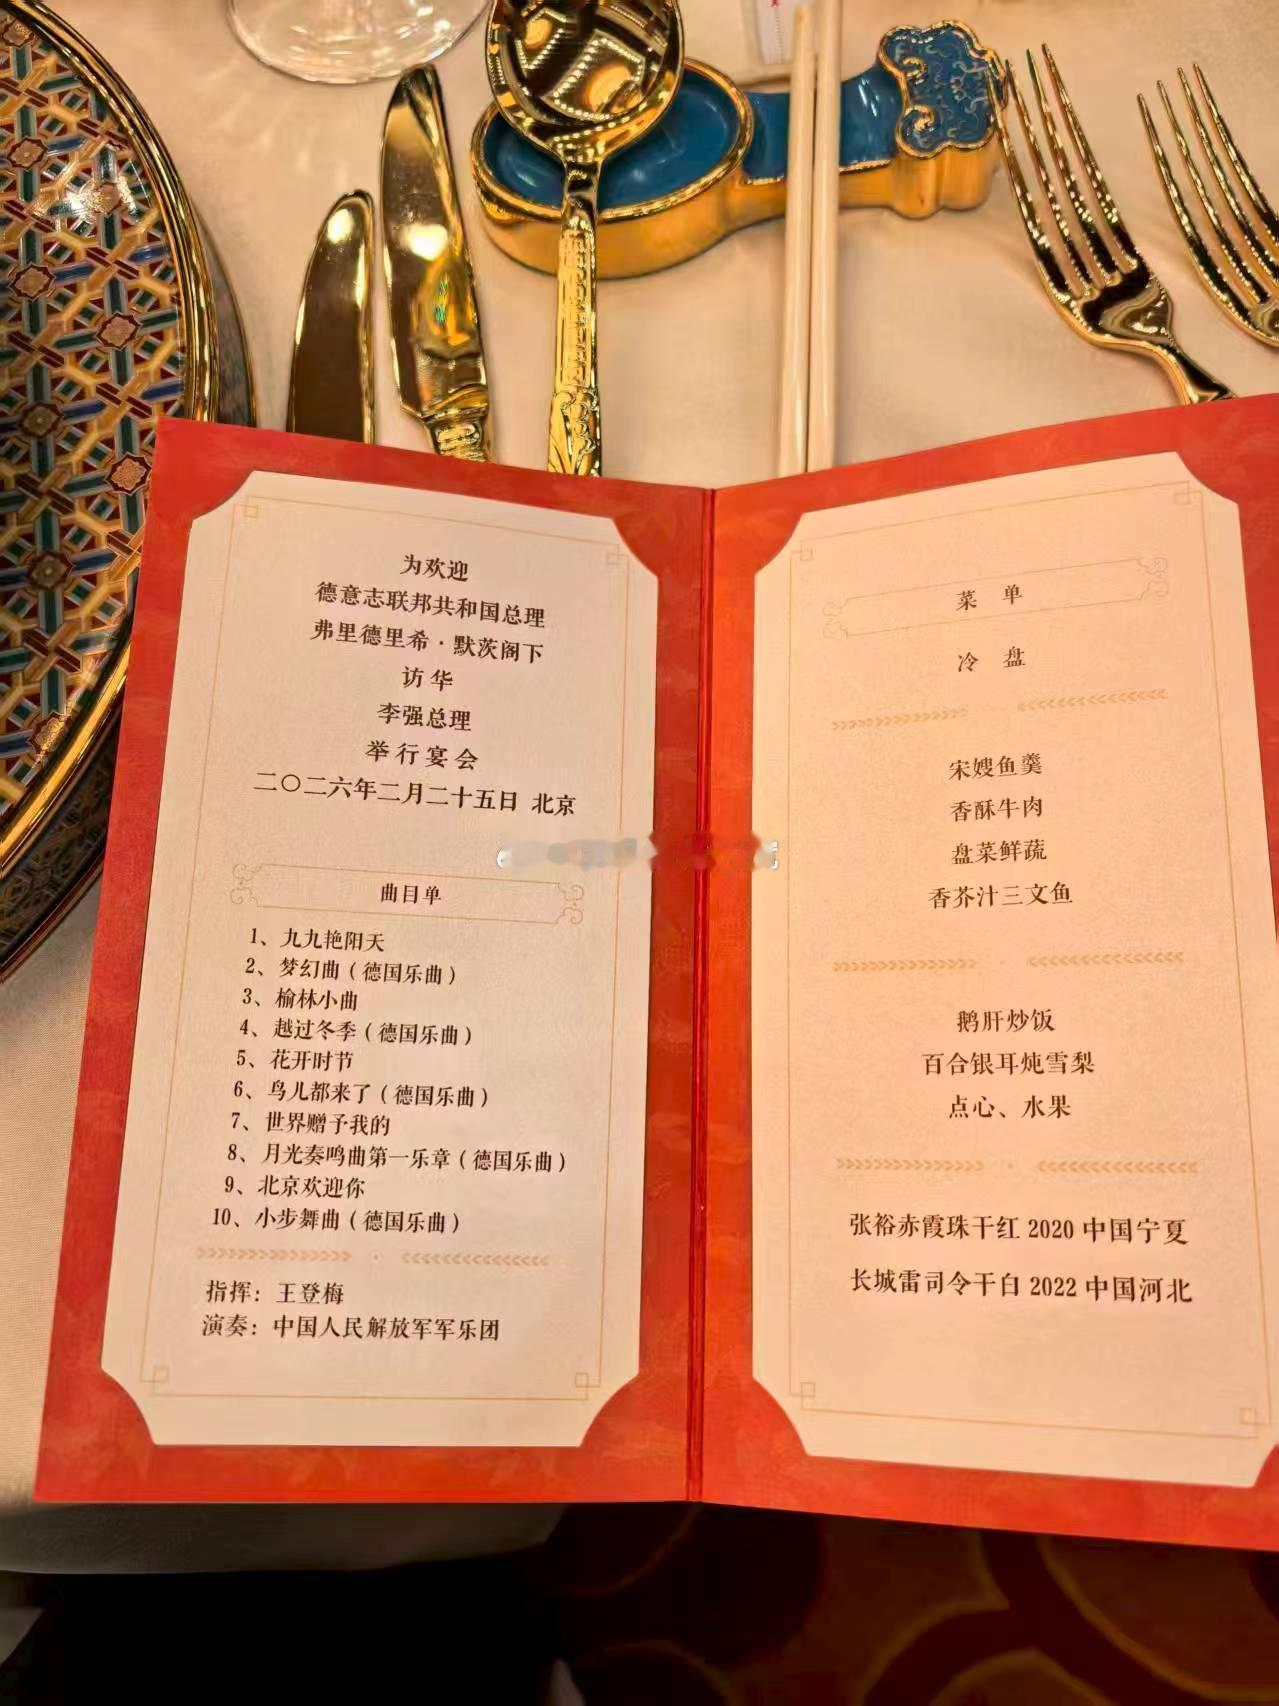 为欢迎
德意志联邦共和国总理
弗里德里希·默茨阁下
访华
李强总理
举行宴会
二〇二六年二月二十五日 北京
曲目单
1、九九艳阳天
2、梦幻曲（德国乐曲）
3、榆林小曲
4、越过冬季（德国乐曲）
5、花开时节
6、鸟儿都来了（德国乐曲）
7、世界赠予我的
8、月光奏鸣曲第一乐章（德国乐曲）
9、北京欢迎你
10、小步舞曲（德国乐曲）
指挥：王登梅
演奏：中国人民解放军军乐团
菜 单
冷 盘
宋嫂鱼羹
香酥牛肉
盘菜鲜蔬
香芥汁三文鱼
鹅肝炒饭
百合银耳炖雪梨
点心、水果
张裕赤霞珠干红 2020 中国宁夏
长城雷司令干白 2022 中国河北